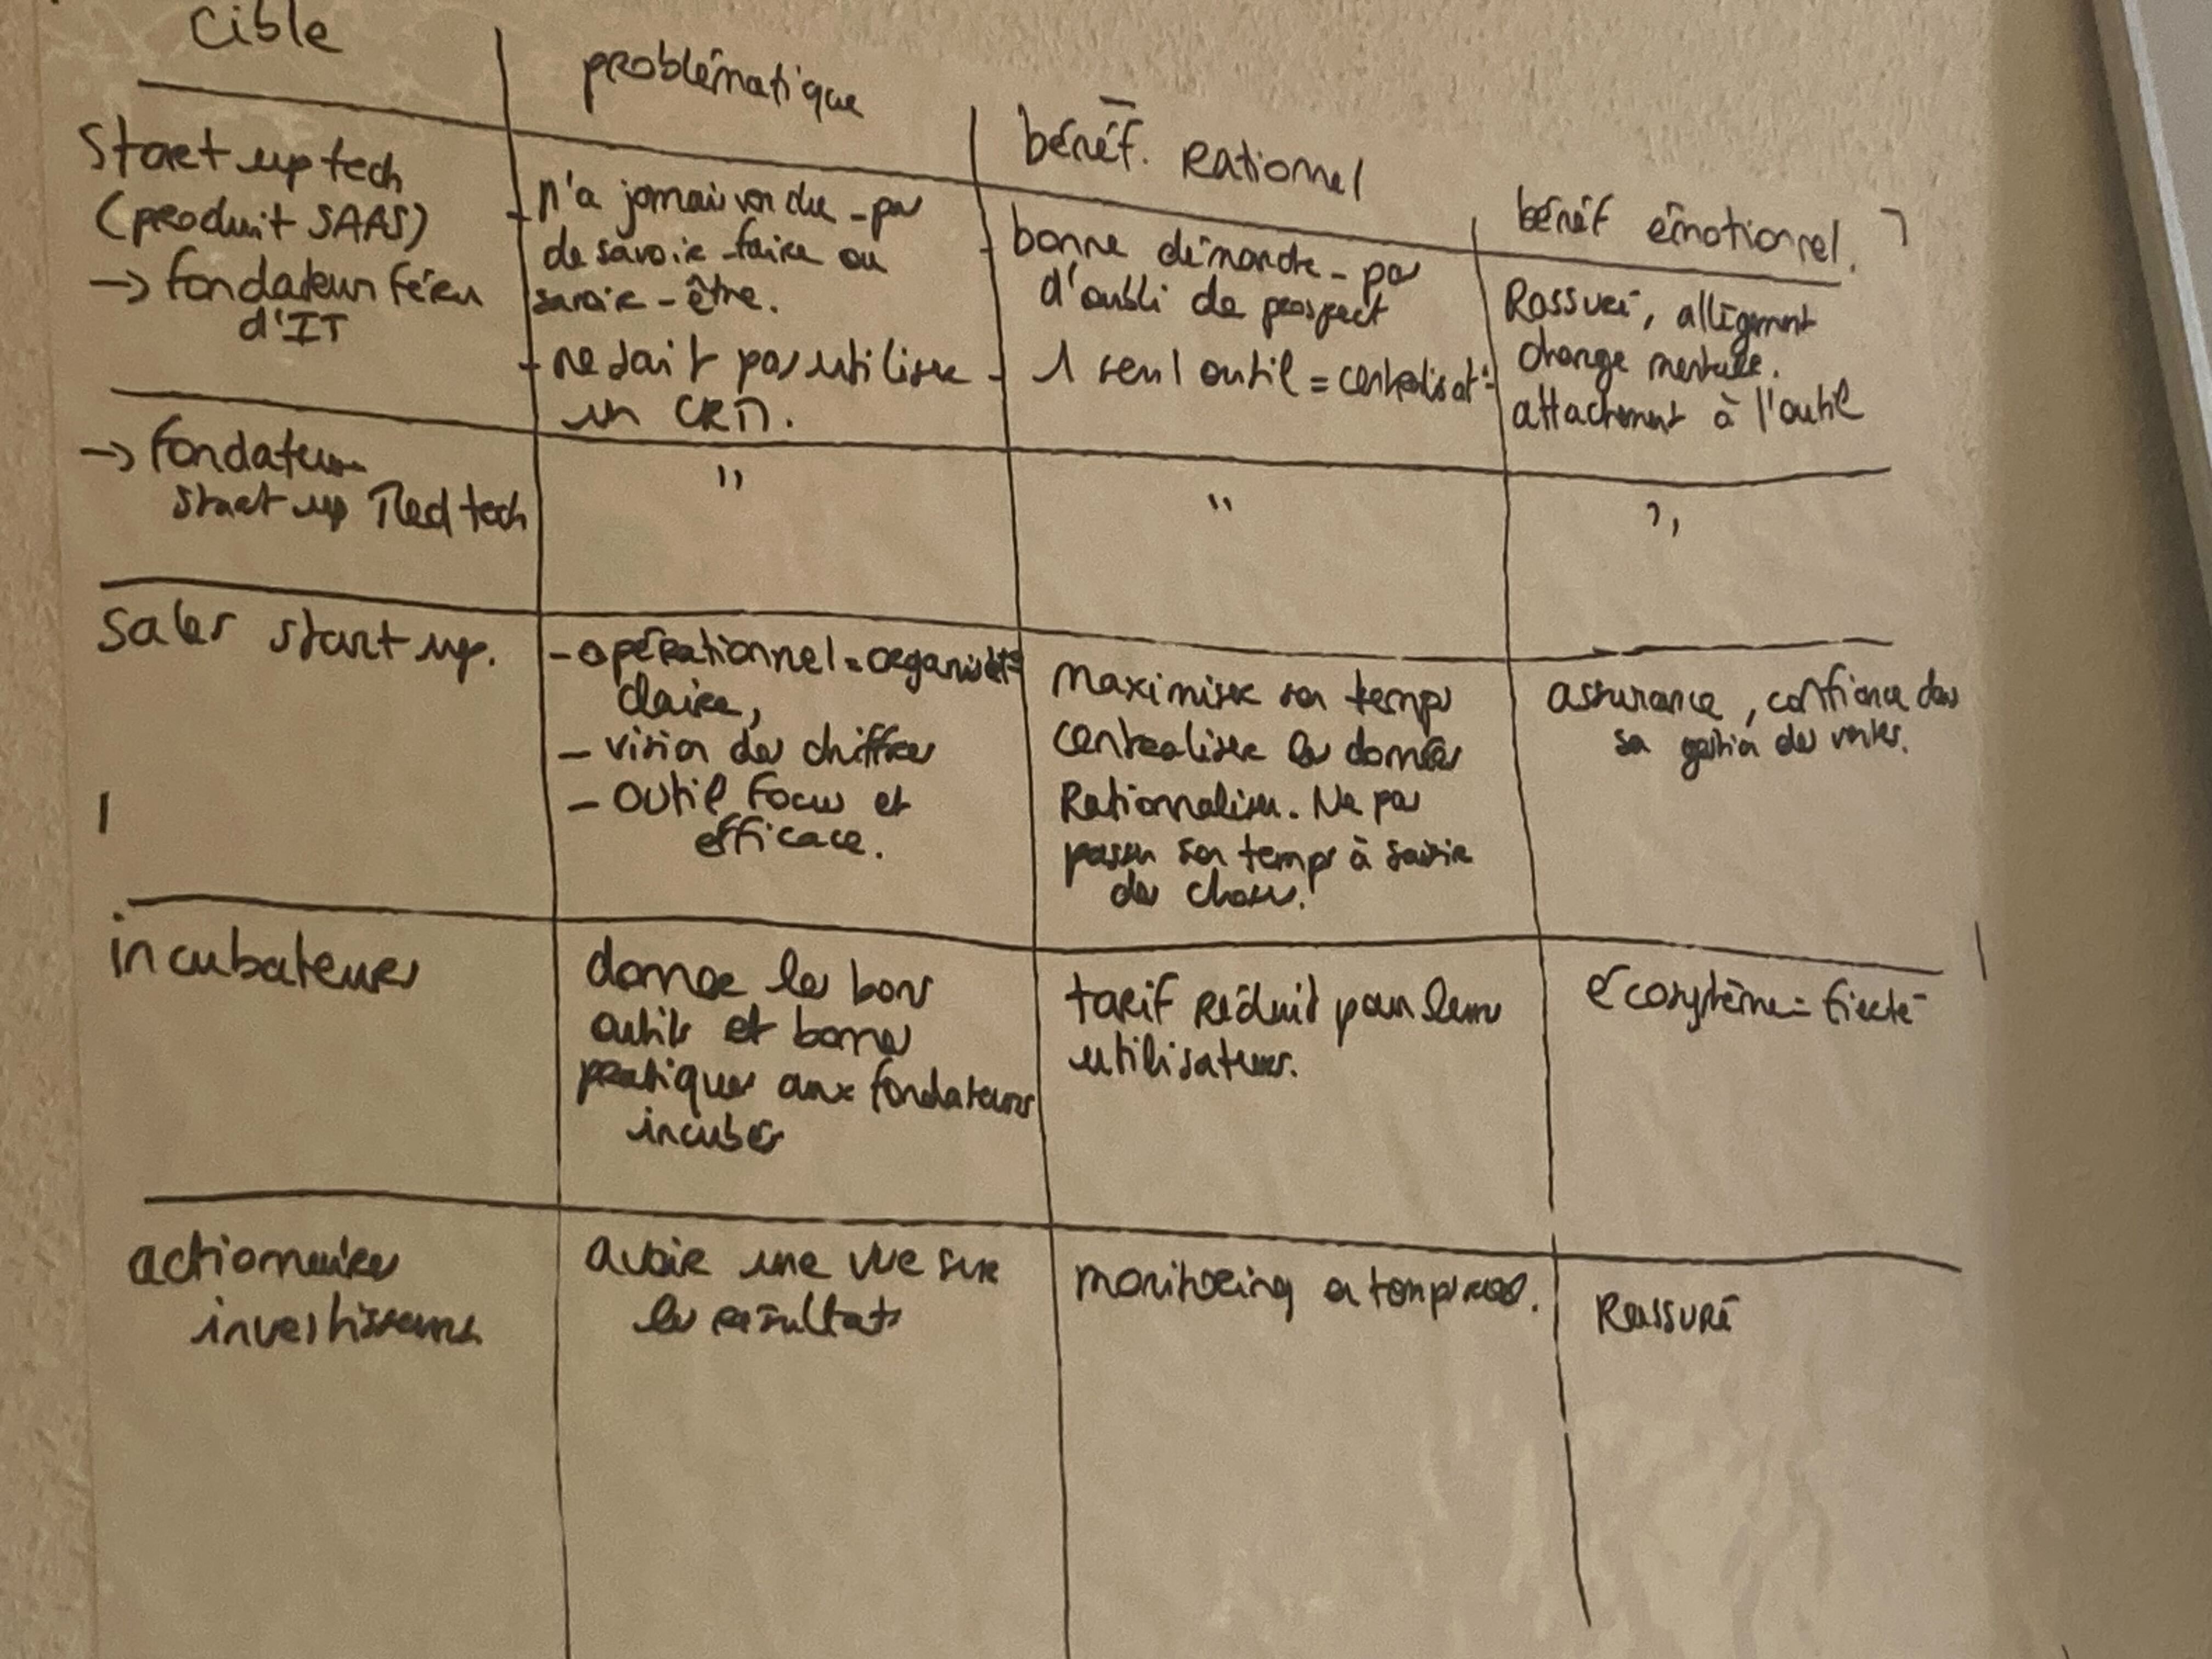 Cible
problématique
bénéf. Rationnel
bénéf émotionnel.
Start up tech
(produit SAAS)
→ fondateur féru
d'IT
- n'a jamais vendu - pas
de savoir-faire ou
savoir-être.
- ne sait pas utiliser
un CRM.
- bonne démarche - pas
d'oubli de prospect
- 1 seul outil = centralisat°
Rassuré, allègement
charge mentale.
attachement à l'outil
→ fondateur
start up Medtech
"
"
"
Sales start up.
- opérationnel = organisat°
claire,
- vision des chiffres
- outil focus et
efficace.
maximiser son temps
centraliser les données
Rationnaliser. Ne pas
passer son temps à saisir
des choses.
assurance, confiance dans
sa gestion des ventes.
incubateurs
donner les bons
outils et bonnes
pratiques aux fondateurs
incubés
tarif réduit pour leurs
utilisateurs.
écosytème = fierté
actionnaires
investisseurs
avoir une vue sur
les résultats
monitoring en temps réel.
Rassuré